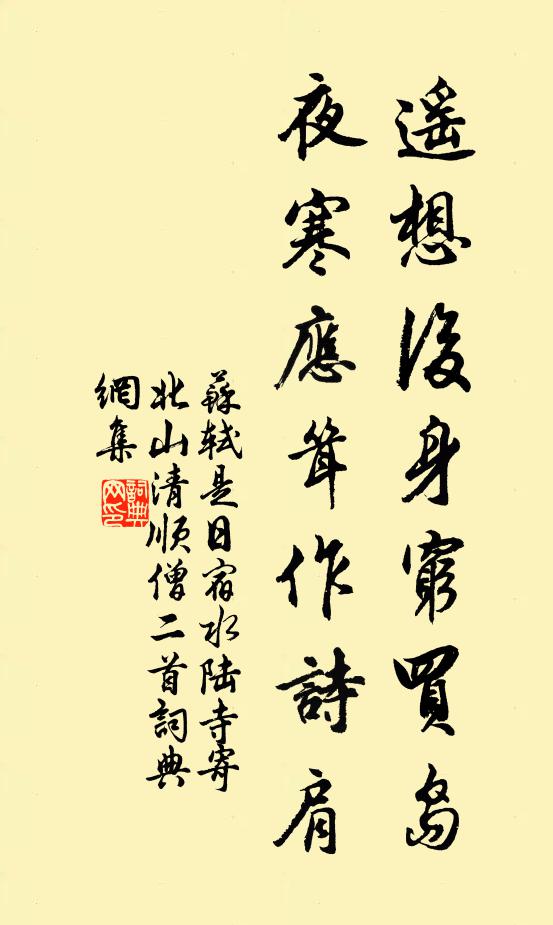 遙想後身窮賈島
夜寒應聳作詩肩
蘇軾是日宿水陸寺寄
北山清順僧二首詞典
網集
詞典
网印